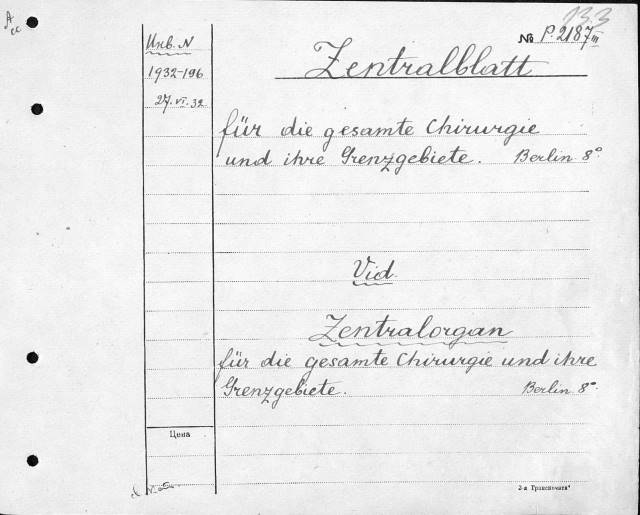 A
cc
133
№ P. 2187 III
Инв. N
1932-196
27. VI. 32
Zentralblatt
für die gesamte Chirurgie
und ihre Grenzgebiete. Berlin 8°.
Vid.
Zentralorgan
für die gesamte Chirurgie und ihre
Grenzgebiete. Berlin 8°.
Цена